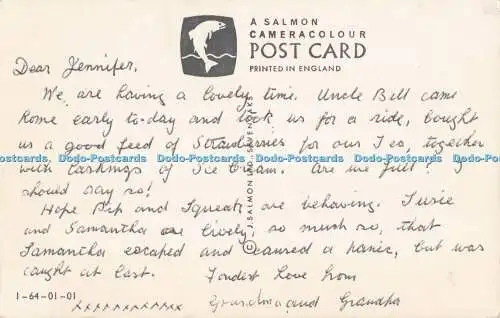 A SALMON
CAMERACOLOUR
POST CARD
PRINTED IN ENGLAND
Dear Jennifer,
We are having a lovely time. Uncle Bill came
home early to-day and took us for a ride, bought
us a good feed of Strawberries for our Tea, together
Dodo-Postcards Dodo-Postcards Dodo-Postcards Dodo-Postcards Dodo-Postcards
with lashings of Ice Cream. Are we full? I
should say so!
Hope Pip and Squeak are behaving. Susie
and Samantha are lively so much so, that
Samantha escaped and caused a panic, but was
caught at last. Fondest Love from
Grandma and Grandpa
1-64-01-01
xxxxxxxxxxxx
© J. SALMON LTD. SEVENOAKS